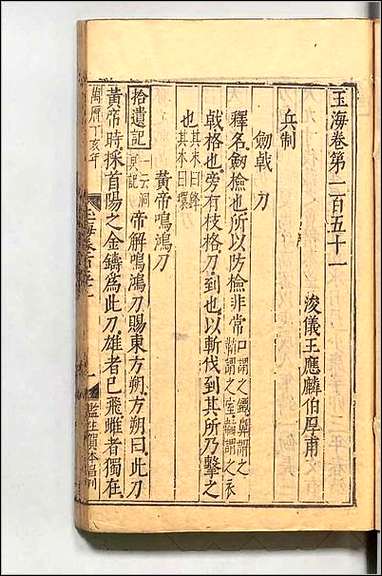 玉海卷第一百五十一
浚儀王應麟伯厚甫
兵制
劒戟 刀
釋名劒檢也所以防檢非常口謂之鐔鼻謂之室謂之衣
戟格也旁有枝格刀到也以斬伐到其所乃擊之
也其末曰鋒其本曰環
黃帝鳴鴻刀
拾遺記一云洞冥記帝解鳴鴻刀賜東方朔方朔曰此刀
黃帝時採首陽之金鑄為此刀雄者已飛雌者獨在
萬曆丁亥年
玉海卷百五十一
一
監生賀本昌刊